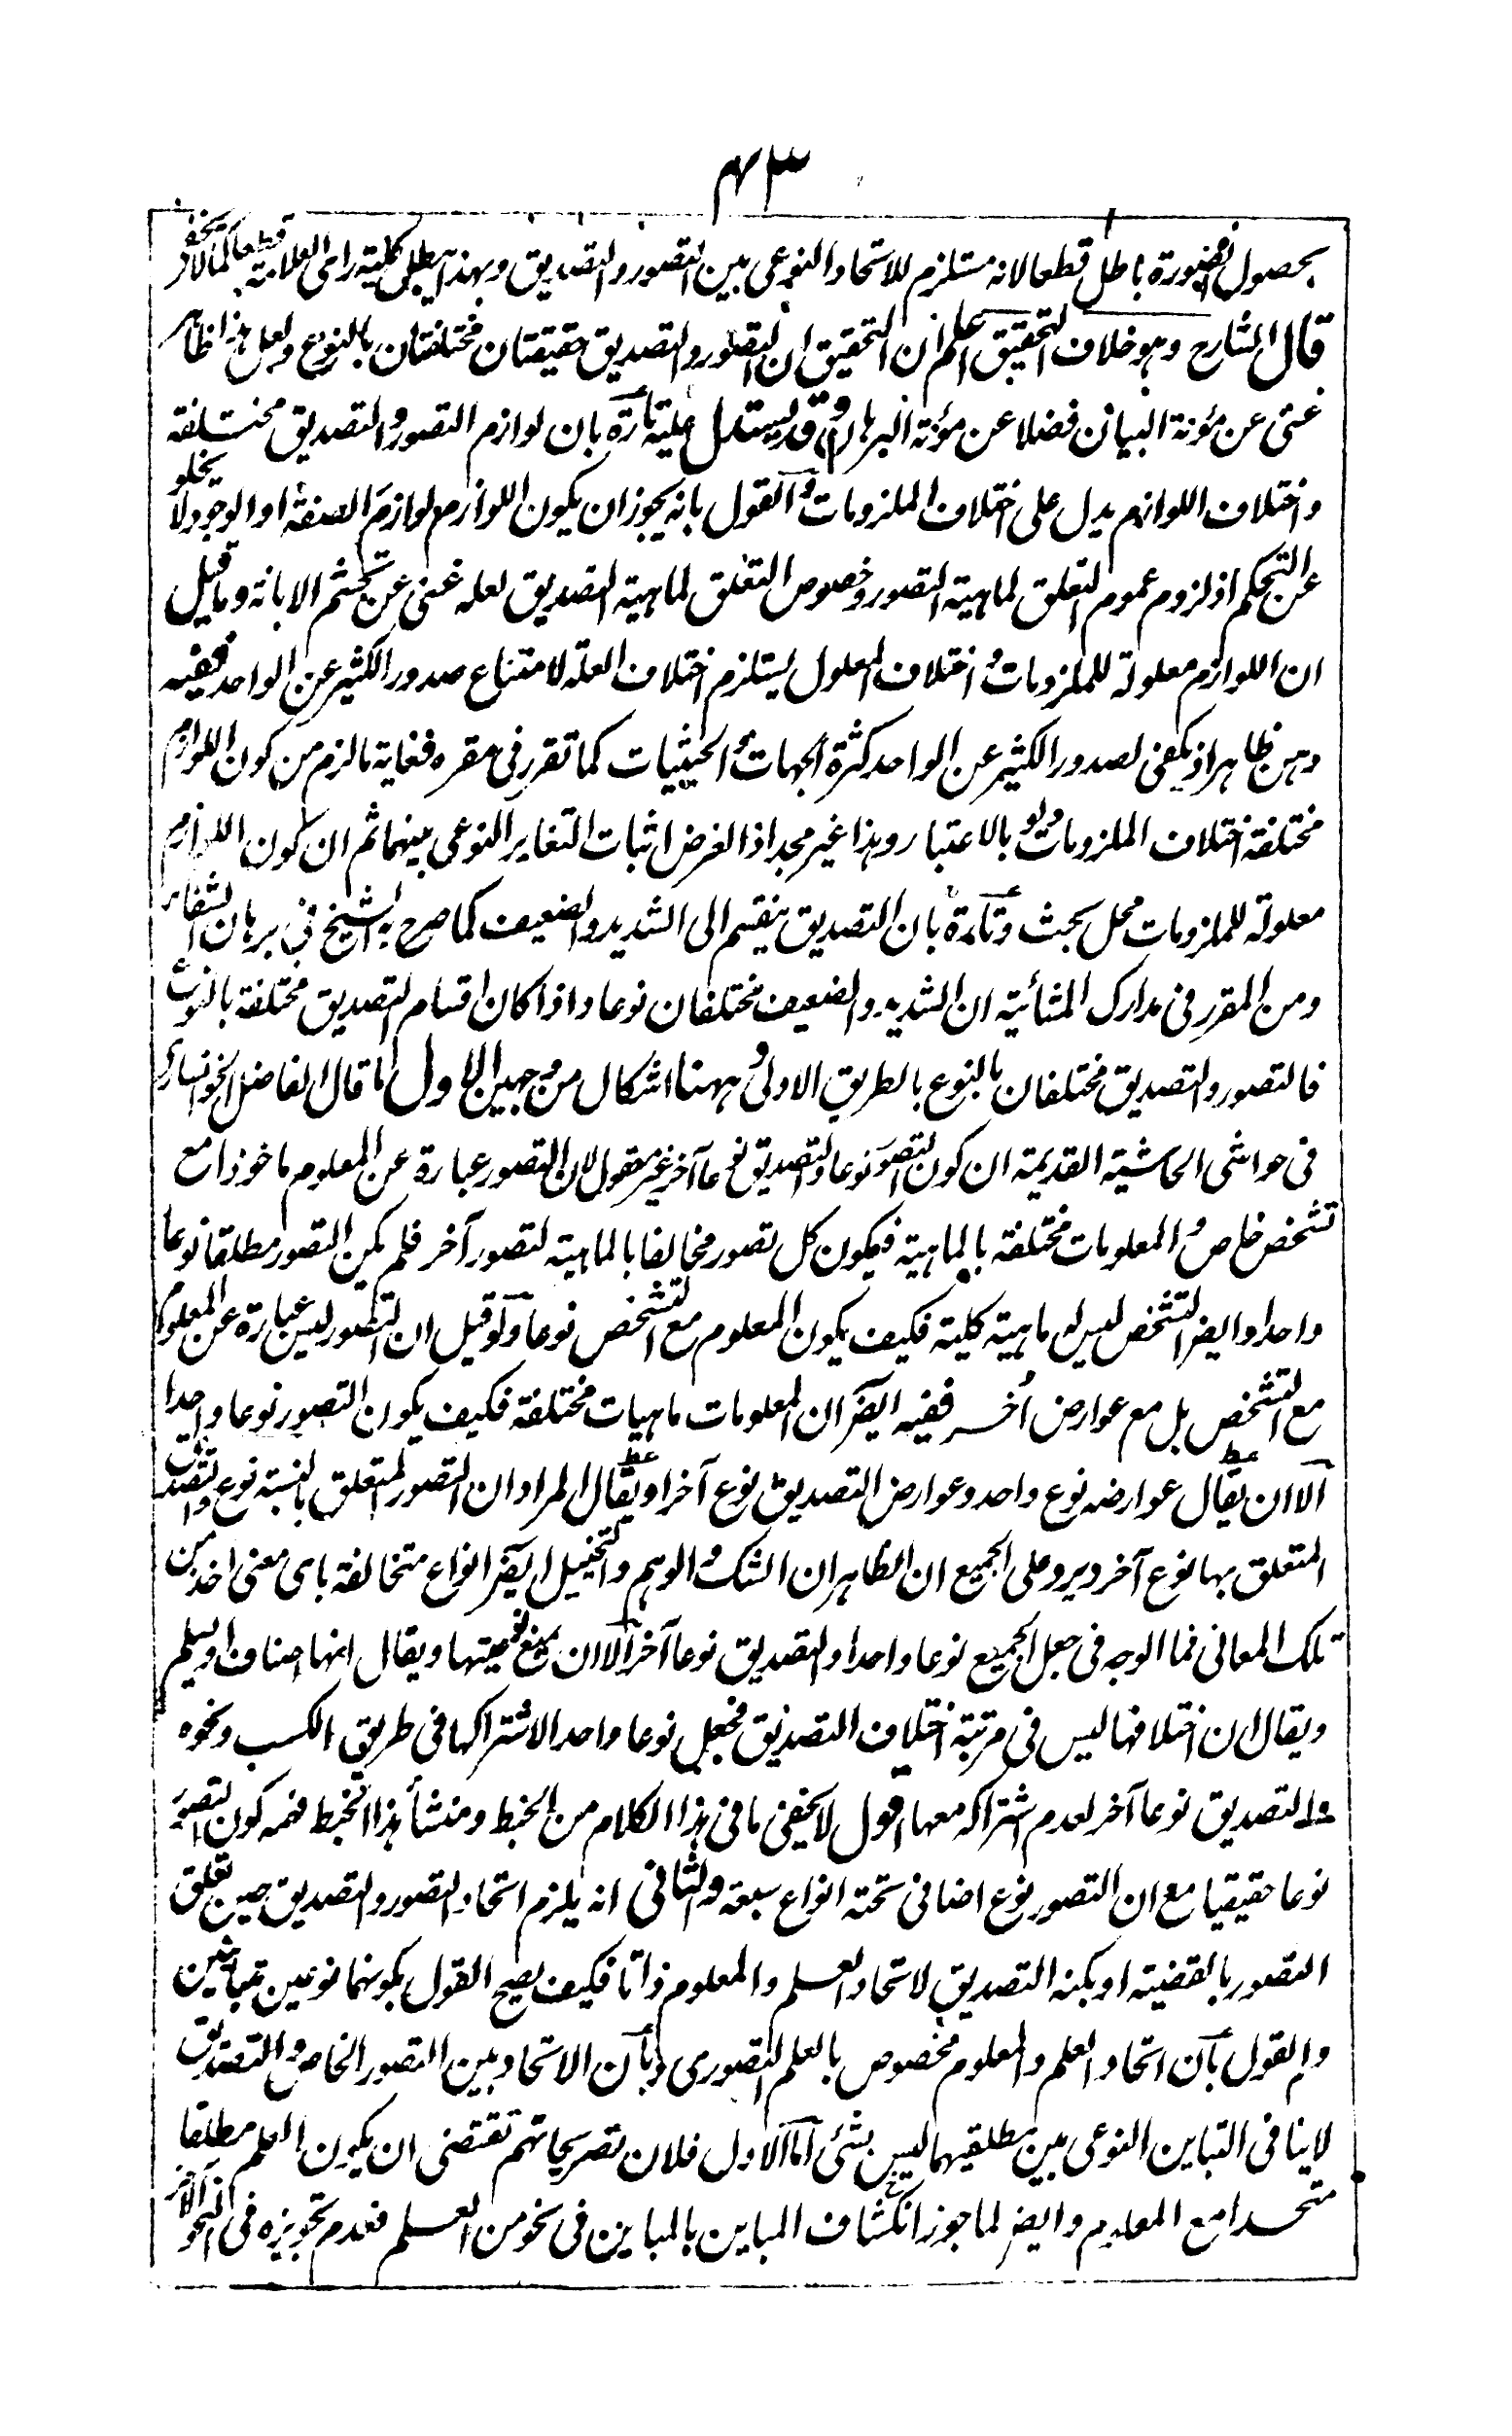 ٤٣
بحصول الصورة باطل قطعا لانه مستلزم للاتحاد النوعى بين التصور والتصديق وبهذا يبطل كلية راى العلامة قطعا كما لا يخفى
قال الشارح وهو خلاف التحقيق اعلم ان التحقيق ان التصور والتصديق حقيقتان مختلفتان بالنوع ولعل هذا ظاهر
غنى عن مؤنة البيان فضلا عن مؤنة البرهان وقد يستدل عليه تارة بان لوازم التصور والتصديق مختلفة
واختلاف اللوازم يدل على اختلاف الملزومات والقول بانه يجوز ان يكون اللوازم لوازم الصنفة او الوجود لا يخلو
عن التحكم اذ لزوم عموم التعلق لماهية التصور وخصوص التعلق لماهية التصديق لعله غنى عن تجشم الابانة وما قيل
ان اللوازم معلولة للملزومات واختلاف المعلول يستلزم اختلاف العلة لامتناع صدور الكثير عن الواحد ففيه
وهن ظاهر اذ يكفى لصدور الكثير عن الواحد كثرة الجهات والحيثيات كما تقرر فى مقره فغاية ما لزم من كون اللوازم
مختلفة اختلاف الملزومات ولو بالاعتبار وهذا غير مجد اذ الغرض اثبات التغاير النوعى بينهما ثم ان كون اللوازم
معلولة للملزومات محل بحث وتارة بان التصديق ينقسم الى الشديد والضعيف كما صرح به الشيخ فى برهان الشفاء
ومن المقرر فى مدارك المشائية ان الشديد والضعيف مختلفان نوعا واذا كان اقسام التصديق مختلفة بالنوع
فالتصور والتصديق مختلفان بالنوع بالطريق الاولى وههنا اشكال من وجهين الاول ما قال الفاضل الخوانسارى
فى حواشى الحاشية القديمة ان كون التصور نوعا والتصديق نوعا آخر غير معقول لان التصور عبارة عن المعلوم ماخوذا مع
تشخص خاص والمعلومات مختلفة بالماهية فيكون كل تصور مخالفا بالماهية لتصور آخر فلم يكن التصور مطلقا نوعا
واحدا وايضا التشخص ليس له ماهية كلية فكيف يكون المعلوم مع التشخص نوعا ولو قيل ان التصور ليس عبارة عن المعلوم
مع التشخص بل مع عوارض اُخر ففيه ايضا ان المعلومات ماهيات مختلفة فكيف يكون التصور نوعا واحدا
الا ان يقال عوارضه نوع واحد وعوارض التصديق نوع آخر او يقال المراد ان التصور المتعلق بالنسبة نوع والتصديق
المتعلق بها نوع آخر ويرد على الجميع ان الظاهر ان الشك والوهم والتخييل ايضا انواع متخالفة باى معنى اخذ من
تلك المعانى فما الوجه فى جعل الجميع نوعا واحدا والتصديق نوعا آخر الا ان يمنع نوعيتها ويقال انها اصناف او يسلم
ويقال ان اختلافها ليس فى مرتبة اختلاف التصديق فجعل نوعا واحدا لاشتراكها فى طريق الكسب ونحوه
والتصديق نوعا آخر لعدم اشتراكه معها اقول لا يخفى ما فى هذا الكلام من الخبط ومنشأ هذا الخبط فهمه كون التصور
نوعا حقيقيا مع ان التصور نوع اضافى تحته انواع سبعة والثانى انه يلزم اتحاد التصور والتصديق حين تعلق
التصور بالقضية او بكنه التصديق لاتحاد العلم والمعلوم ذاتا فكيف يصح القول بكونهما نوعين متباينين
والقول بان اتحاد العلم والمعلوم مخصوص بالعلم التصورى وبان الاتحاد بين التصور الخاص والتصديق
لا ينافى التباين النوعى بين مطلقيهما ليس بشئ اما الاول فلان تصريحاتهم تقتضى ان يكون العلم مطلقا
متحدا مع المعلوم وايضا لما جوز انكشاف المباين بالمباين فى نحو من العلم فعدم تجويزه فى النحو الآخر